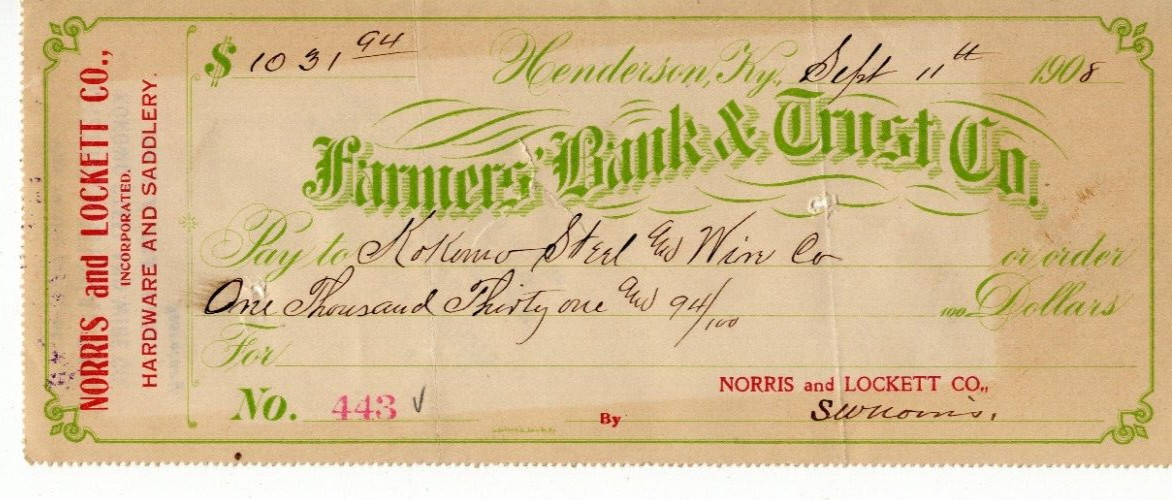 NORRIS and LOCKETT CO.,
INCORPORATED.
HARDWARE AND SADDLERY.
$ 1031 94
Henderson, Ky., Sept 11th 1908
Farmers' Bank & Trust Co.
Pay to Kokomo Steel and Wire Co or order
One Thousand Thirty one and 94/100 100 Dollars
For
No. 443 ✓
NORRIS and LOCKETT CO.,
By SWNorris.